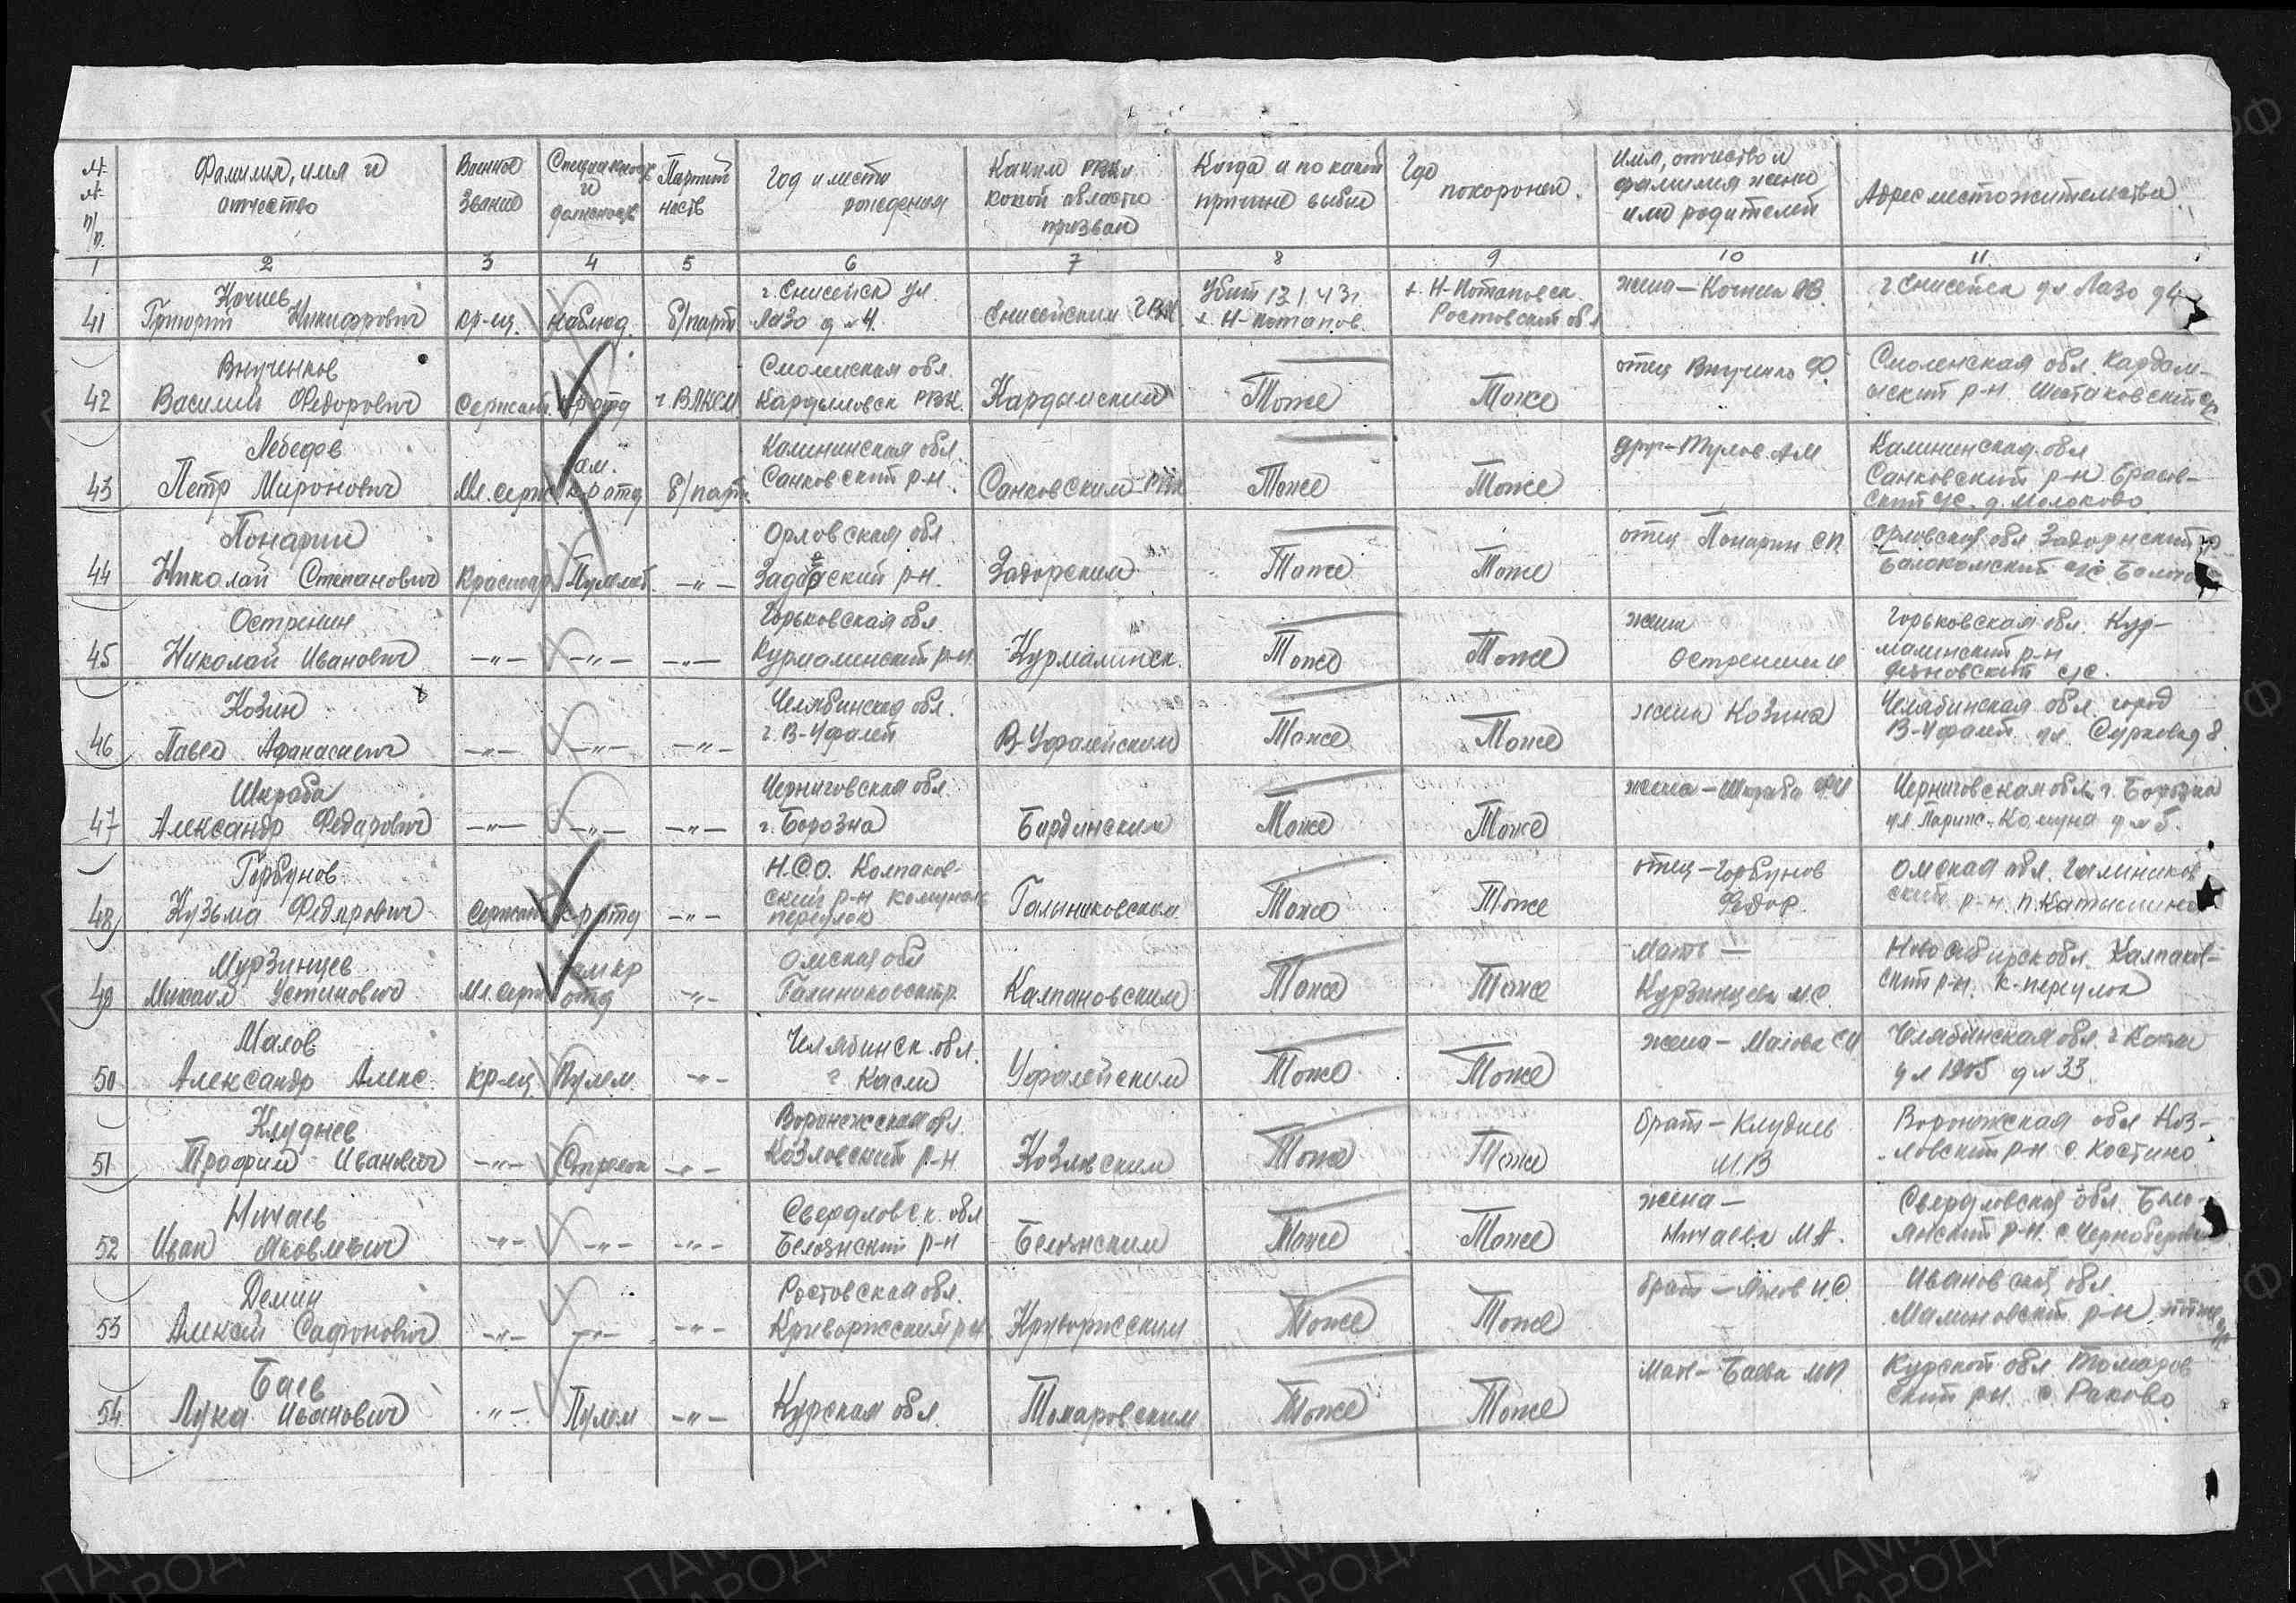 № № п/п.
Фамилия, имя и отчество
Военное звание
Специальность и должность
Партийность
Год и место рождения
Каким РВК и какой области призван
Когда и по какой причине выбыл
Где похоронен.
Имя, отчество и фамилия жены или родителей
Адрес местожительства.
1 2 3 4 5 6 7 8 9 10 11
41 Кочнев Григорий Никифорович
кр-ец.
наблюд.
б/парт
г. Енисейск ул. Лазо д № 4.
Енисейским ГВК
Убит 13.1.43г х. Н-Потапов.
х. Н-Потаповск. Ростовской обл
жена –
г. Енисейск ул Лазо д 4
42 Внученков Василий Федорович
Сержант
к-р отд
ч. ВЛКСМ
Смоленская обл. Кардымовск РВК.
Тоже
Тоже
отец
Смоленская обл. Кардам-
43 Лебедев Петр Миронович
Мл. серж
зам. к-р отд
б/парт.
Калининская обл. Санковский р-н.
Санковским РВК
Тоже
Тоже
друг – Тулов АМ
Калининская обл Санковский р-н д. Молоково
44 Понарин Николай Степанович
Красноар
Пулемет.
–"–
Орловская обл. р-н.
Задорским
Тоже
Тоже
отец Понарин СП
Орловская обл
45 Остренин Николай Иванович
–"–
–"–
–"–
Горьковская обл. Курмалинский р-н
Курмалинск.
Тоже
Тоже
жена
Горьковская обл. Кур-
малинский р-н с/с.
46 Козин Павел Афанасиевич
–"–
–"–
–"–
Челябинская обл. г. В-Уфалей
В-Уфалейским
Тоже
Тоже
жена Козина
Челябинская обл. город
В-Уфалей ул. Суркова д 8.
47 Шкраба Александр Федорович
–"–
–"–
–"–
Черниговская обл г. Борозна
Бардинским
Тоже
Тоже
жена – Шкраба
Черниговская обл. г. Борозна
ул. Париж. Комуна д № 5.
48 Горбунов Кузьма Федорович
Сержант
к-р отд
–"–
Н.С.О. Колпаков-
ский р-н комунак
переулок
Тоже
Тоже
отец – Горбунов
Федор.
Омская обл.
р-н п.
49 Мурзинцев Михаил Устинович
Мл. серж
зам кр отд
–"–
Омская обл
Калпановским
Тоже
Тоже
Мать –
М.С.
Новосибирск обл. Калпаков-
ский р-н. к-переулок
50 Малов Александр Алекс.
кр-ец
Пулем.
–"–
Челябинск. обл. г Касли
Уфалейским
Тоже
Тоже
жена – Малова
Челябинская обл. г Касли
ул 1905 д № 33.
51 Клуднев Трофим Иванович
–"–
Стрелок
–"–
Воронежская обл. Козловский р-н
Козловским
Тоже
Тоже
брат – Клуднев
И.В
Воронжская обл Коз-
ловский р-н с. Костино
52 Ничаев Иван Яковлевич
–"–
–"–
–"–
Свердловск. обл Белоянский р-н
Белоянским
Тоже
Тоже
жена –
Ничаева М А.
Свердловская обл. Бело-
янский р-н. с.
53 Демин Алексей Сафонович
–"–
–"–
–"–
Ростовская обл. Криворжский р-н
Криворжским
Тоже
Тоже
брат –
Ивановской обл.
р-н
54 Баев Лука Иванович
–"–
Пулем
–"–
Курская обл.
Томаровским
Тоже
Тоже
Мать – Баева
Курской обл Томаров
ский р-н. с. Раково